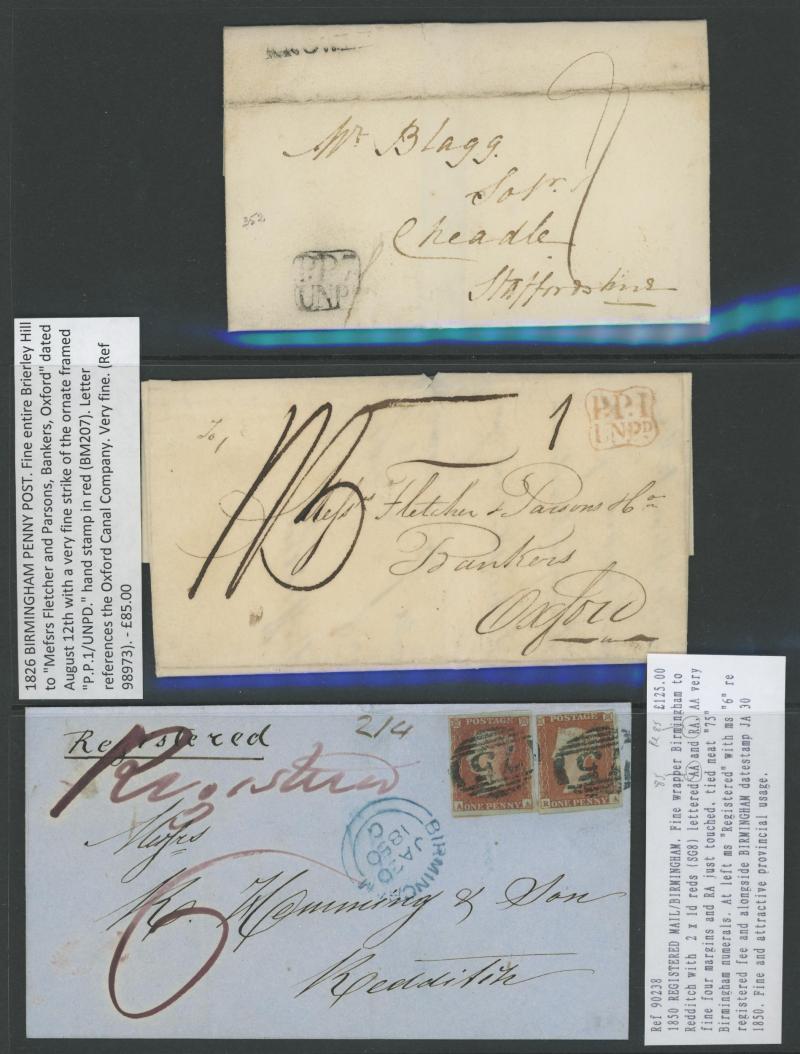 Mr. Blagg.
Solr.
Cheadle
Staffordshire
7
352
P.P.1
UNPD
1826 BIRMINGHAM PENNY POST. Fine entire Brierley Hill
to "Mefsrs Fletcher and Parsons, Bankers, Oxford" dated
August 12th with a very fine strike of the ornate framed
"P.P.1/UNPD." hand stamp in red (BM207). Letter
references the Oxford Canal Company. Very fine. (Ref
98973). - £85.00
To,
1
P.P.1
UNPD
Messrs Fletcher & Parsons & Co
Bankers
Oxford
Registered
2/4
Registered
POSTAGE
A A
ONE PENNY
75
POSTAGE
R A
ONE PENNY
75
BIRMINGHAM
JA 30
1850
C
Messrs
R. Hemming & Son
Redditch
6
Ref 90238
1850 REGISTERED MAIL/BIRMINGHAM. Fine wrapper Birmingham to £125.00
Redditch with 2 x 1d reds (SG8) lettered AA and RA. AA very
fine four margins and RA just touched, tied neat "75"
Birmingham numerals. At left ms "Registered" with ms "6" re
registered fee and alongside BIRMINGHAM datestamp JA 30
1850. Fine and attractive provincial usage.